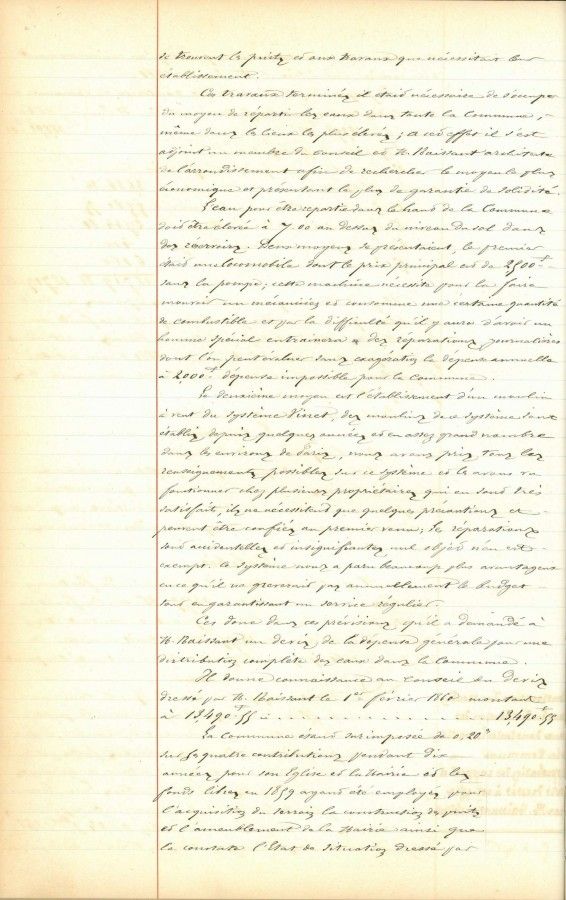 se trouvent les puits et aux travaux que nécessitait leur
établissement.
Ces travaux terminés il était nécessaire de s'occuper
du moyen de répartir les eaux dans toute la Commune,
même dans les lieux les plus élevés ; à cet effet il s'est
adjoint un membre du Conseil et M. Naissant architecte
de l'arrondissement afin de rechercher le moyen le plus
économique et présentant le plus de garantie de solidité
L'eau pour être repartie dans le haut de la Commune
doit être élevée à 7.00 au dessus du niveau du sol dans
des réservoirs. Deux moyens se présentaient, le premier
était une locomobile dont le prix principal est de 2500 f
sans la pompe, cette machine nécessite pour la faire
mouvoir un mécanicien et consomme une certaine quantité
de combustible et par la difficulté qu'il y aura d'avoir un
homme spécial entrainera des réparations journalières
dont l'on peut évaluer sans exagération la dépense annuelle
à 2,000 f dépense impossible pour la Commune.
Le deuxième moyen est l'établissement d'un moulin
à vent du système Virret, des moulins de ce système sont
établis depuis quelques années et en assez grand nombre
dans les environs de Paris, nous avons pris tous les
renseignements possibles sur ce système et les avons vu
fonctionner chez plusieurs propriétaires qui en sont très
satisfait, ils ne nécessitent que quelques précautions et
peuvent être confiés au premier venu ; les réparations
sont accidentelles et insignifiantes, nul objet n'en est
exempt. Ce système nous a paru beaucoup plus avantageux
en ce qu'il ne greverait pas annuellement le budget
tout en garantissant un service régulier.
C'est donc dans ces prévisions qu'il a demandé à
M. Naissant un devis de la dépense générale pour une
distribution complète des eaux dans la Commune.
Il donne connaissance au Conseil du devis
dressé par M. Naissant le 1er février 1860 montant
à 13490 f 55 c . . . . . . . . . . . . . . 13,490 f 55
La Commune étant surimposée de 0,20 c
sur les quatre contributions pendant dix
années pour son Eglise et la Mairie et les
fonds libres en 1859 ayant été employés pour
l'acquisition du terrain la construction des puits
et l'ameublement de la Mairie ainsi que
le constate l'Etat de situation dressé par